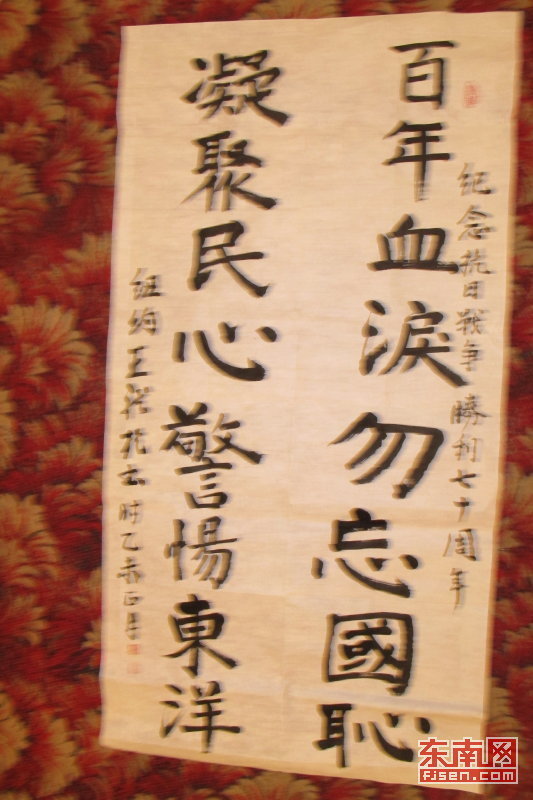 纪念抗日戰争勝利七十周年
百年血淚勿忘國恥
凝聚民心警愓東洋
紐約王书时乙未正月
东南网
FJSEN.COM